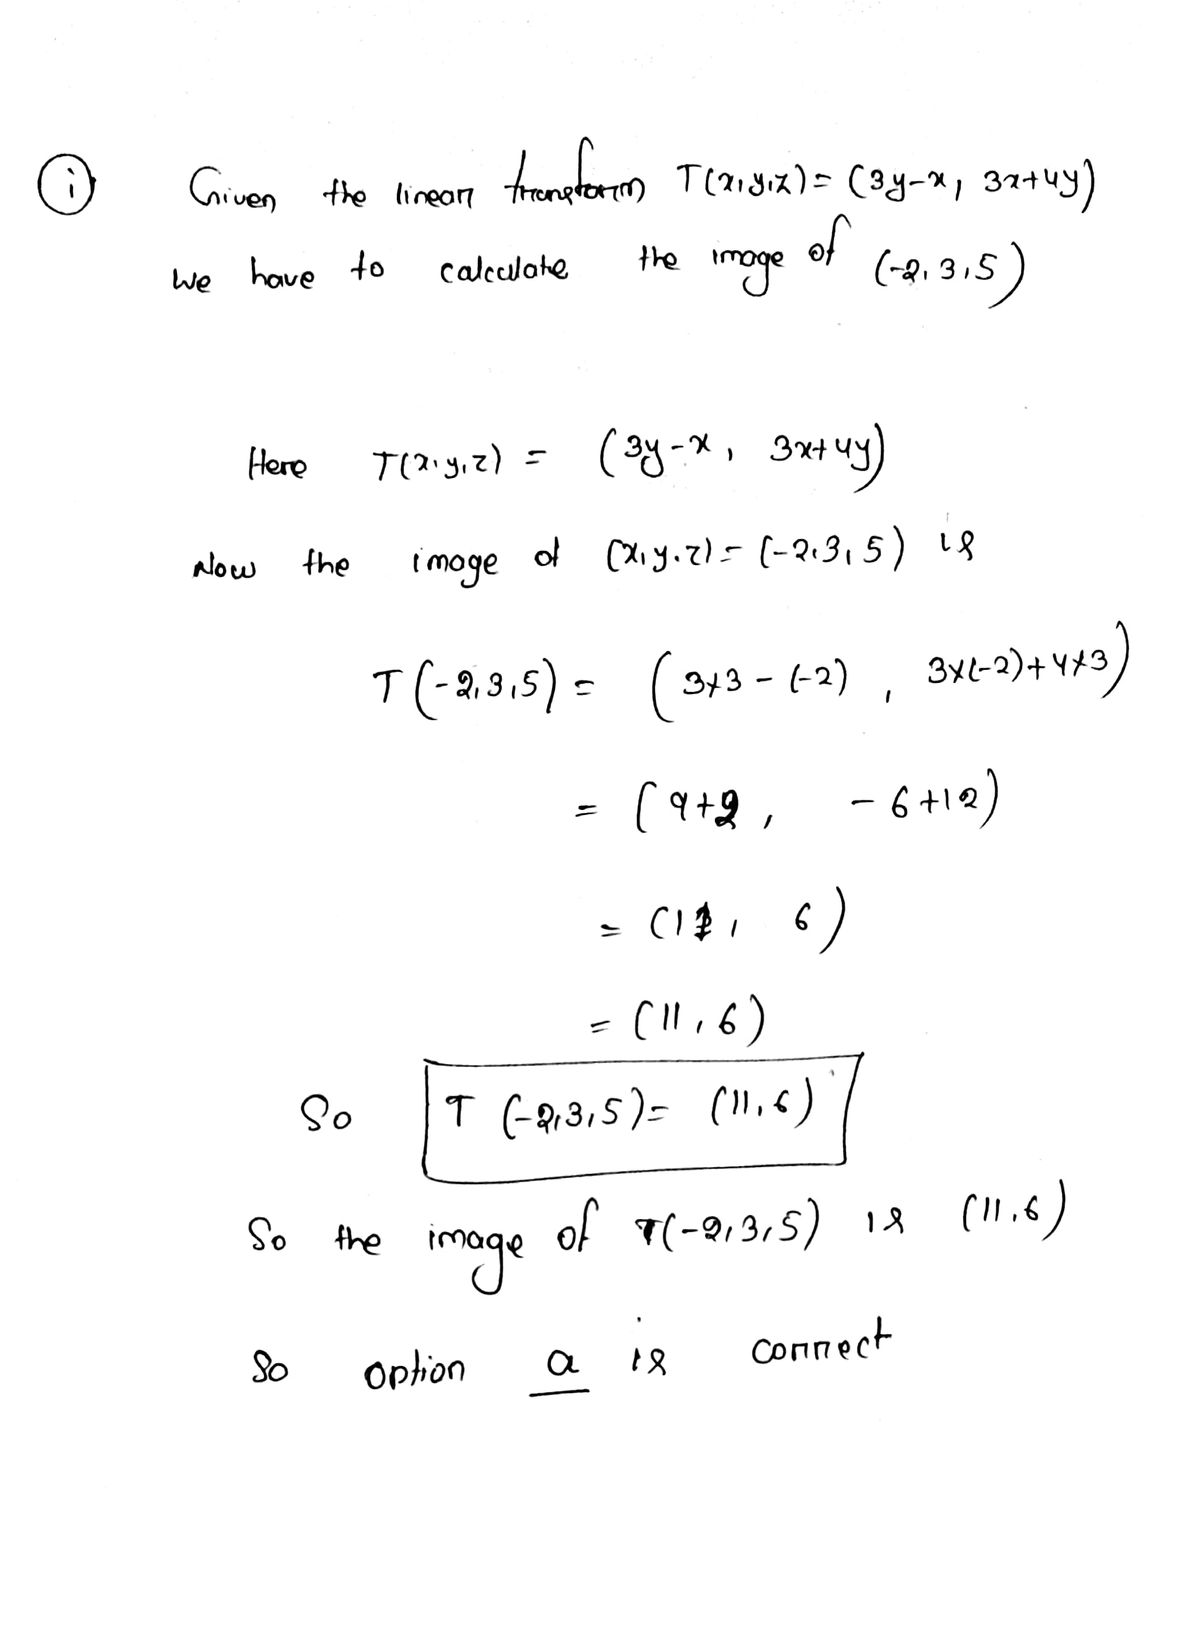 i Given the linear transform T(x,y,z)= (3y-x, 3x+4y)
we have to calculate the image of (-2,3,5)
Here T(x,y,z) = (3y-x, 3x+4y)
Now the image of (x,y,z)= (-2,3,5) is
T(-2,3,5) = (3×3-(-2), 3×(-2)+4×3)
= (9+2, -6+12)
= (11, 6)
= (11,6)
So T(-2,3,5)= (11,6)
So the image of T(-2,3,5) is (11,6)
So option a is correct